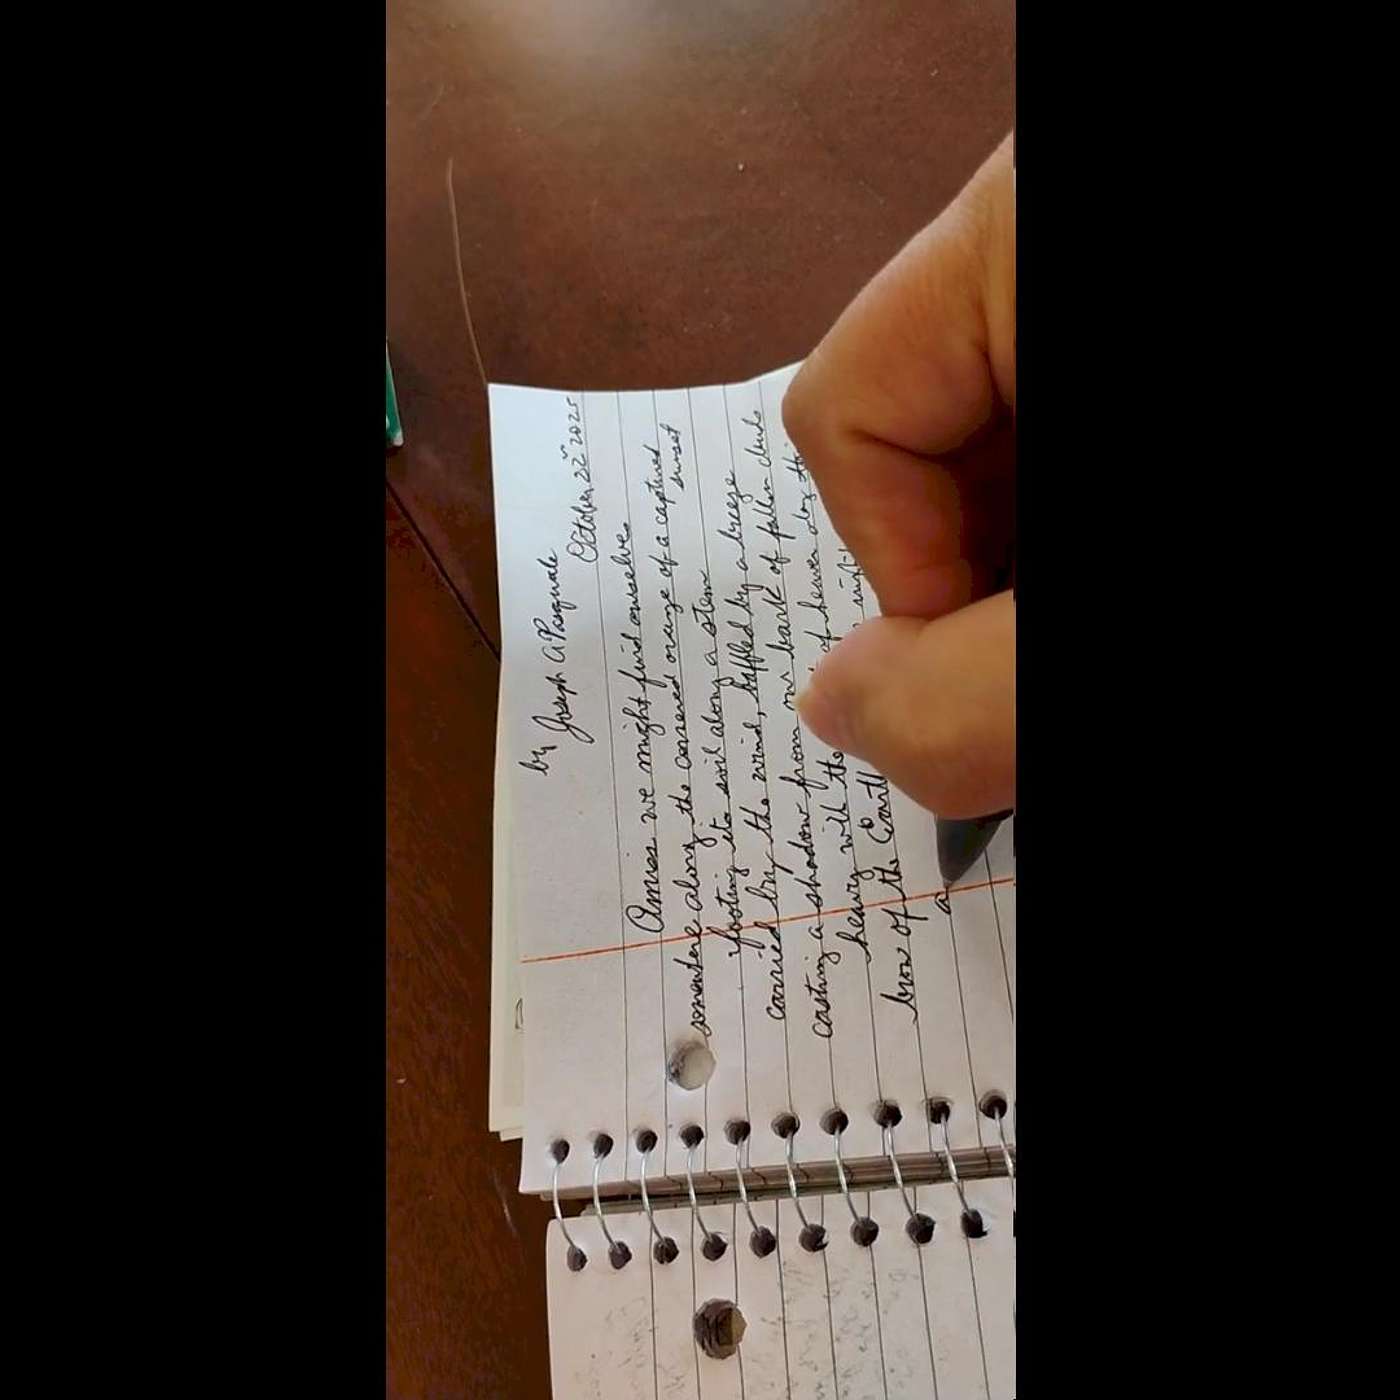 by
Joseph A Pasquale
October 22 2025
Amiss we might find ourselves
somewhere along the conserved orange of a captured
sunset
footing its soil along a stem
carried by the wind, baffled by a breeze
casting a shadow from our bark of fallen
heavy with the of heaven
brow of the Earth
a